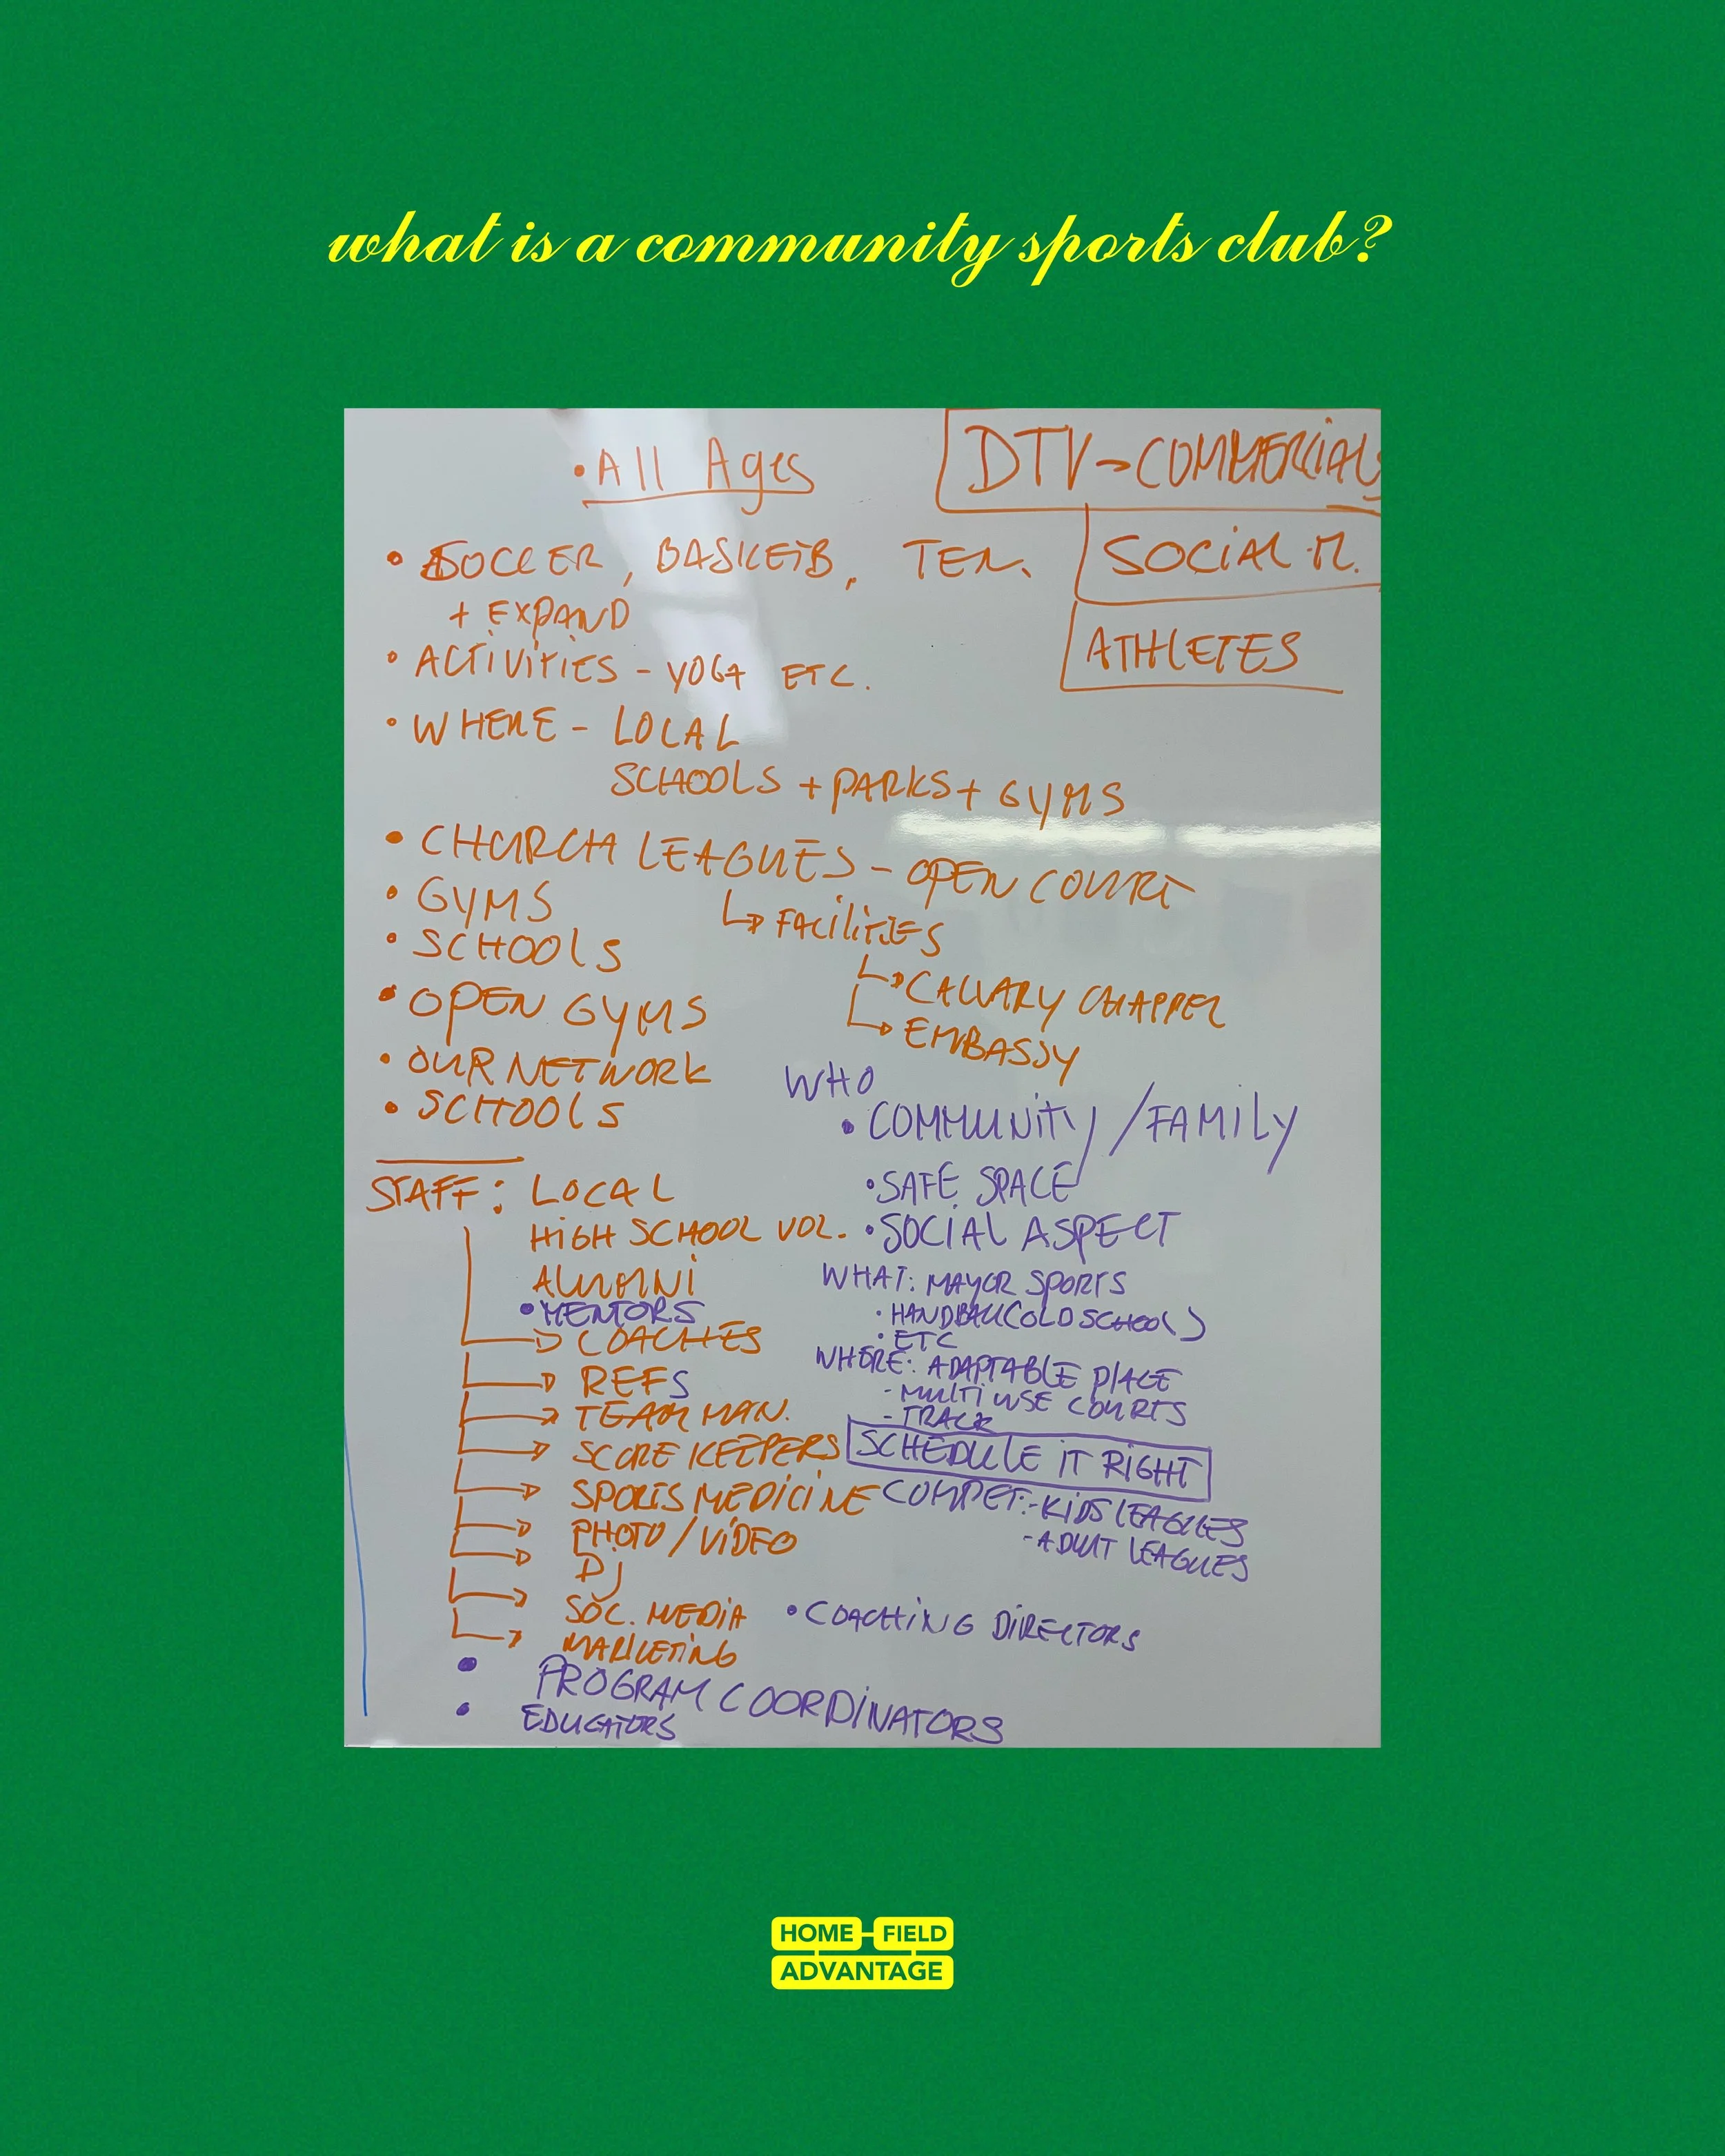 what is a community sports club?
• All Ages
DTV → COMMERCIALS
SOCIAL M.
ATHLETES
• SOCCER, BASKETB, TEN.
+ EXPAND
• ACTIVITIES - YOGA ETC.
• WHERE - LOCAL
SCHOOLS + PARKS + GYMS
• CHURCH LEAGUES - OPEN COURT
↳ FACILITIES
↳ CALVARY CHAPPEL
↳ EMBASSY
• GYMS
• SCHOOLS
• OPEN GYMS
• OUR NETWORK
• SCHOOLS
STAFF: LOCAL
HIGH SCHOOL VOL.
ALUMNI
• MENTORS
→ COACHES
→ REFS
→ TEAM MAN.
→ SCORE KEEPERS
→ SPORTS MEDICINE
→ PHOTO / VIDEO
→ DJ
→ SOC. MEDIA
→ MARKETING
• PROGRAM COORDINATORS
• EDUCATORS
WHO
• COMMUNITY / FAMILY
• SAFE SPACE
• SOCIAL ASPECT
WHAT: MAYOR SPORTS
• HANDBALL (OLD SCHOOL)
• ETC
WHERE: ADAPTABLE PLACE
- MULTI USE COURTS
- TRACK
SCHEDULE IT RIGHT
COMPET: - KIDS LEAGUES
- ADULT LEAGUES
• COACHING DIRECTORS
HOME FIELD
ADVANTAGE